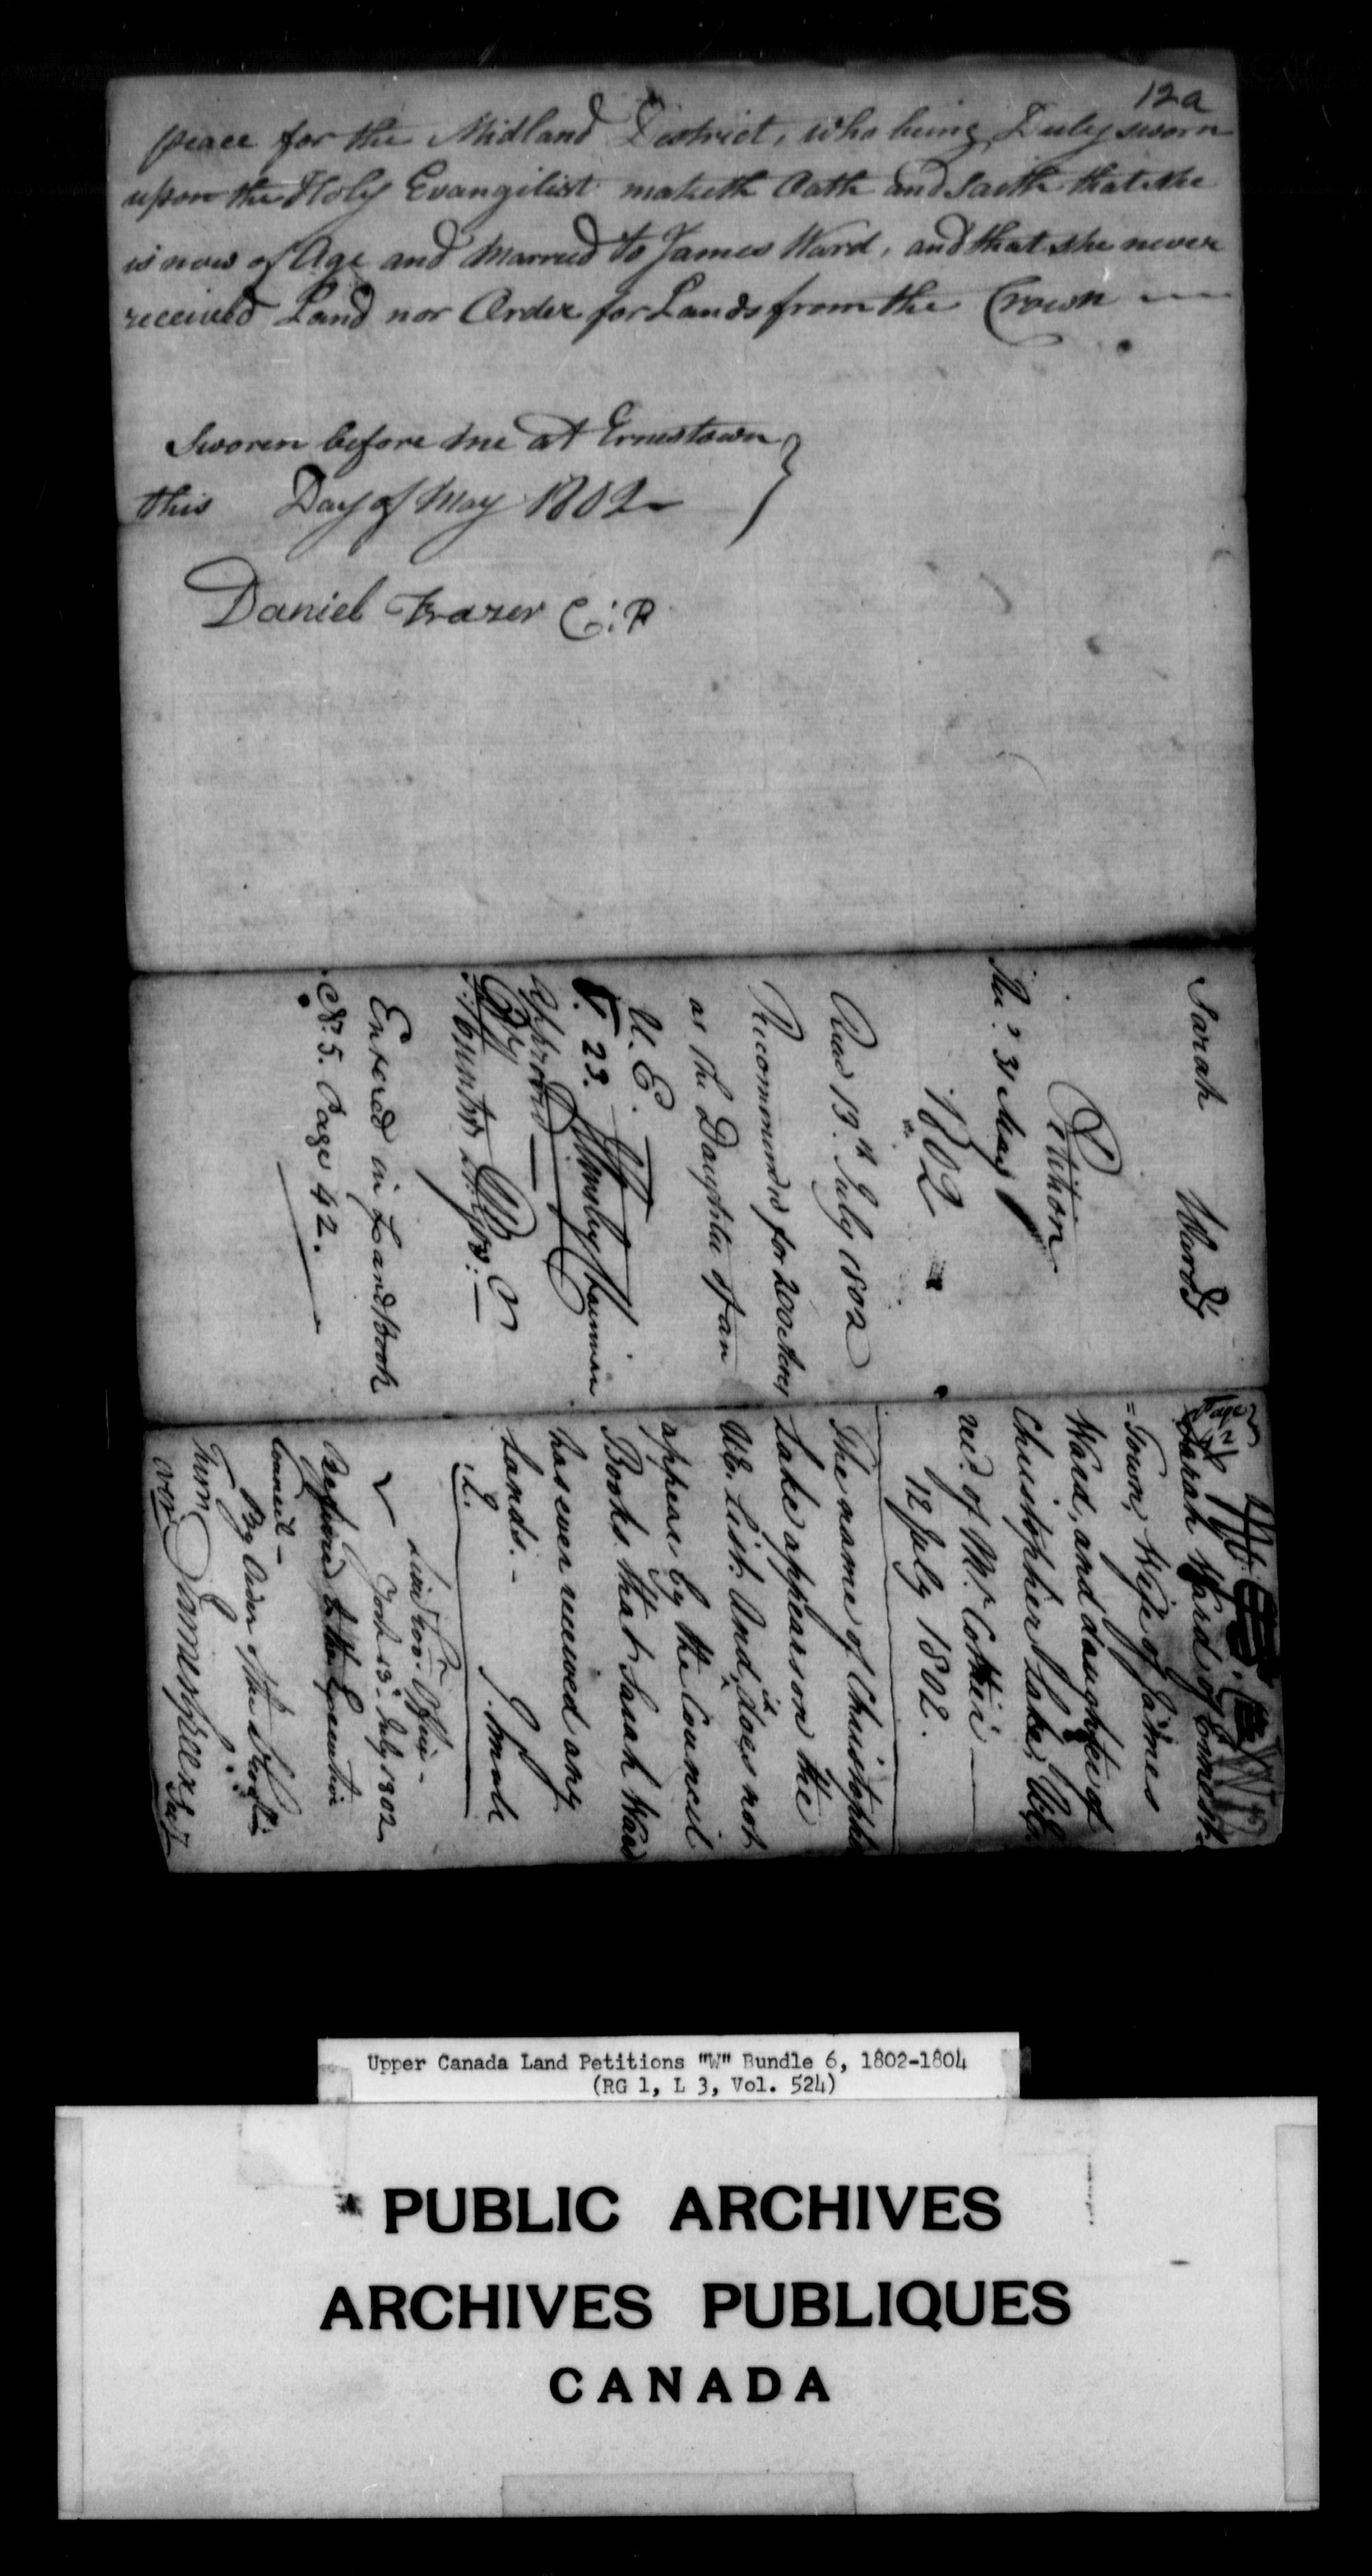 12a
peace for the Midland District, who being Duly sworn
upon the Holy Evangilist maketh Oath and Saith that she
is now of Age and Married to James Ward, and that she never
received Land nor Order for Lands from the Crown
Sworen before me at Ernestown
this Day of May 1802
Daniel Frazer C:P
Sarah Ward
Petition
31 May
1802
Read 13th July 1802
Recommended for 200 Acres
as the Daughter of an
U.E.
23. Elmsley Chairman
approved
P. Hunter Lt. Gov:
Entered in Land Book
N. 5. Page 42.
Page
Sarah Ward of Ernest-
=Town, Wife of James
Ward, and daughter of
Christopher Lake, U.E.
red. of Mr. Cartier
12 July 1802.
The name of Christopher
Lake appears on the
U.E. List. And, it does not
appear by the Council
Books that Sarah Ward
has ever received any
Lands.-
J. Small
Lieut Govr. Office-
York 13. July 1802
Referred to the Executive
Council-
By Order of the
James Green Secy
Turn
over
Upper Canada Land Petitions "W" Bundle 6, 1802-1804
(RG 1, L 3, Vol. 524)
PUBLIC ARCHIVES
ARCHIVES PUBLIQUES
CANADA